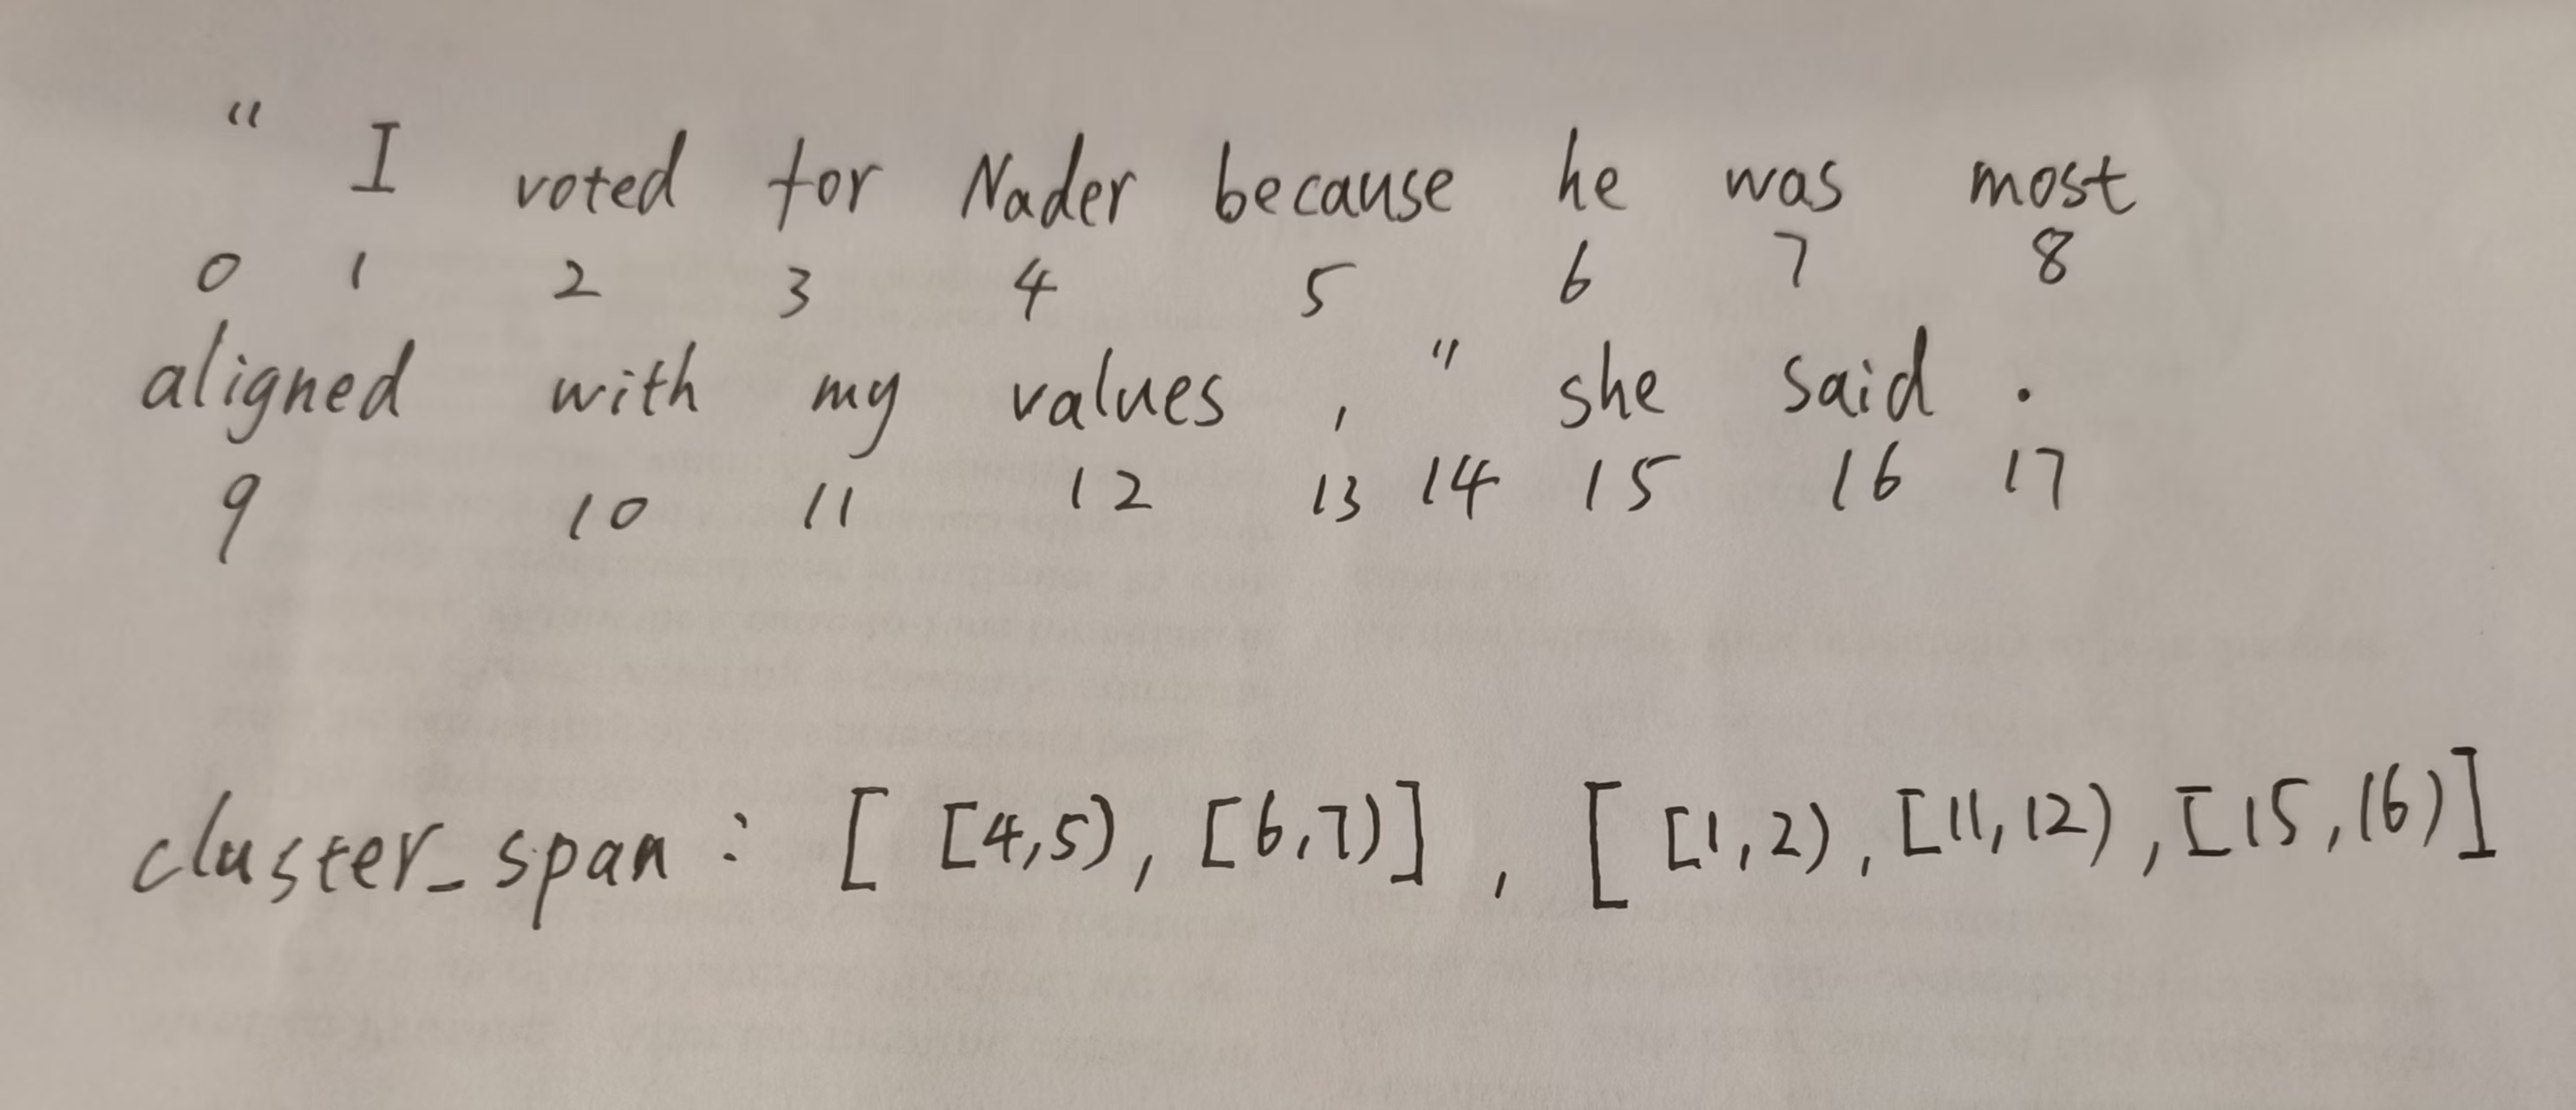 “ I voted for Nader because he was most
0 1 2 3 4 5 6 7 8
aligned with my values , ” she said .
9 10 11 12 13 14 15 16 17
cluster_span : [ [4,5), [6,7)] , [ [1,2), [11,12), [15,16)]